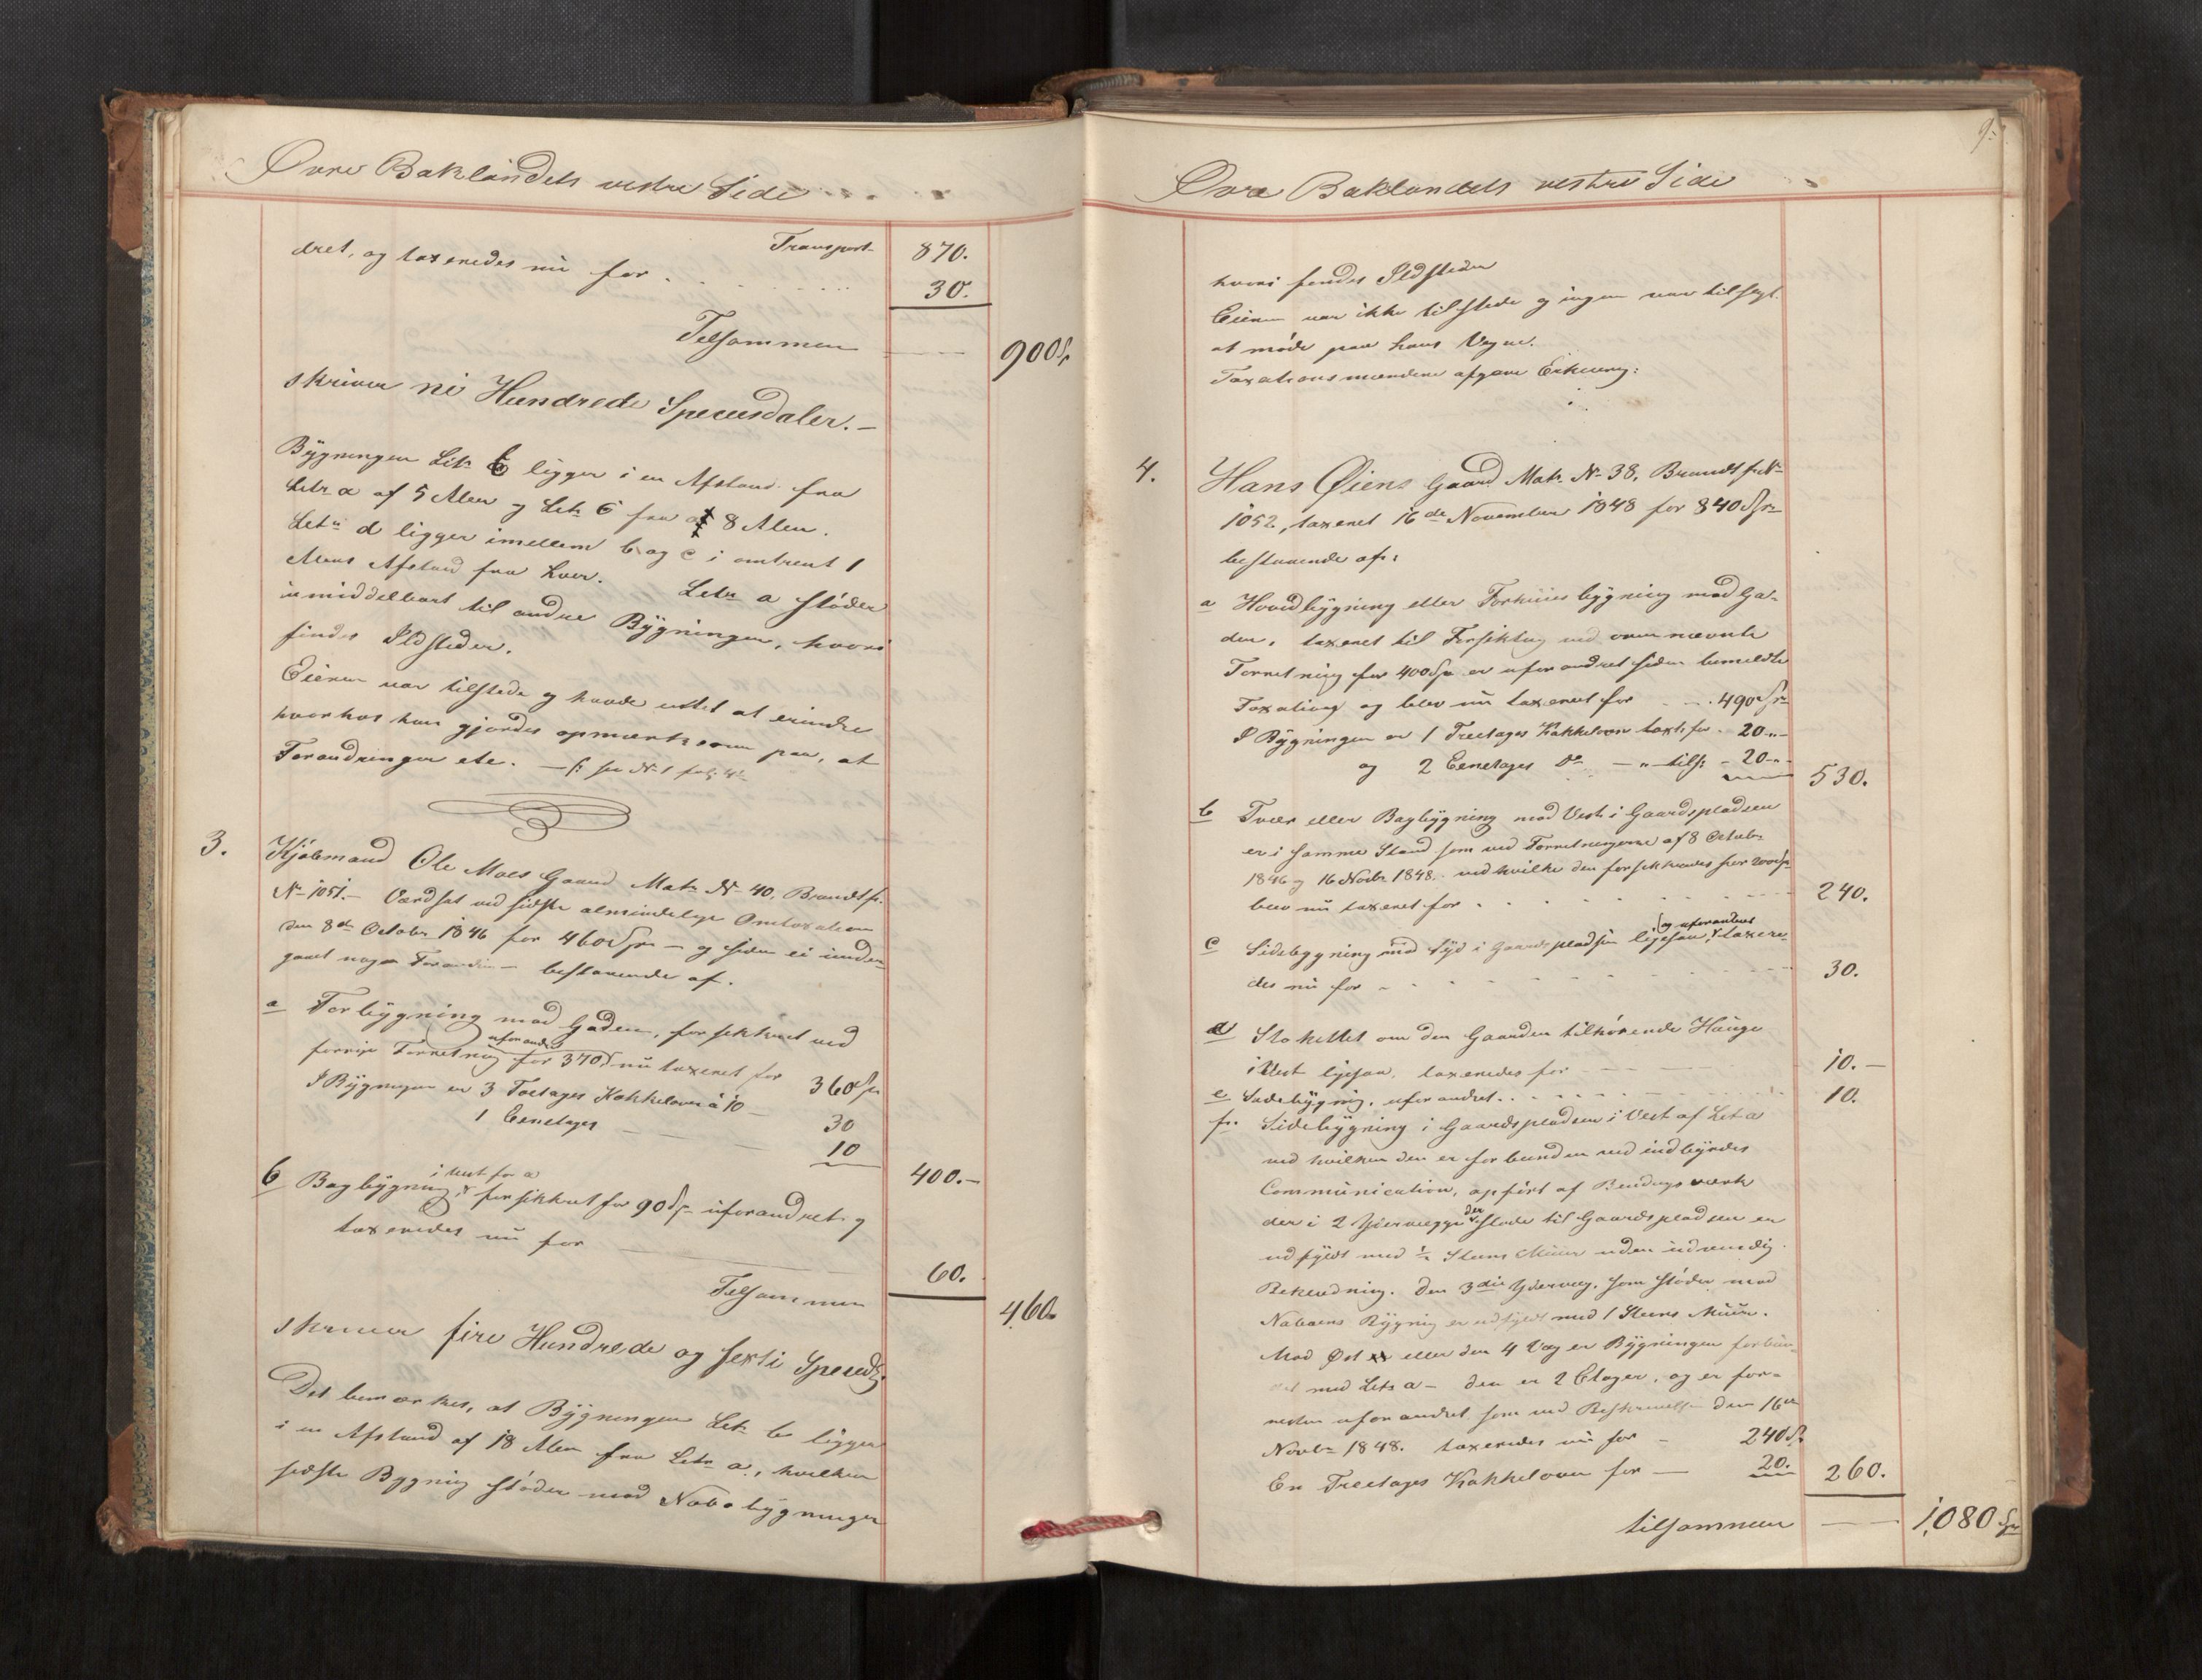 Øvre Baklandets vestre Side
Transport 870.
dret, og taxeredes nu for . . . . . 30.
Tilsammen — 900 Sp
skriver ni Hundrede Speciesdaler. —
Bÿgningen Litr b ligger i en Afstand fra
Litr a af 5 Alen og Litr c fra a 8 Alen.
Litr d ligger imellem b og c i omtrent 1
Alens Afstand fra hver. Litr a støder
umiddelbart til andre Bÿgninger, hvori
findes Ildsteder.
Eieren var tilstede og havde intet at erindre
hvorhos han gjordes opmærksom paa, at
Forandringer etc. — see No 1
3. Kjøbmand Ole Moes Gaard Matr. No 40, Brandtf.
No 1051. — Værdsat ved sidste almindelige Omtaxation
den 8de October 1846 for 460 Spr — og siden ei under-
gaaet nogen Forandring — bestaaende af.
a Forbÿgning mod Gaden, forsikkret ved
uforandret
forrige Forretning for 370 Sp nu taxeret for 360 Sp
I Bÿgningen er 3 Toetages Kakkelovne à 10 — 30
1 Eenetages — — 10
400. —
i Vest for a
b Bagbÿgning forsikkret for 90 Sp uforandret og
taxeredes nu for — 60.
Tilsammen 460
skriver fire Hundrede og sexti Speciedlr
Det bemærkes, at Bÿgningen Litr b ligger
i en Afstand af 18 Alen fra Litr a, hvilken
sidste Bygning støder mod Nabobÿgninger
9.
Øvre Baklandets vestre Side
hvori findes Ildsteder
Eieren var ikke tilstede og ingen var tilsagt
at møde paa hans Vegne.
Taxationsmændene afgave Eskning:
4. Hans Øiens Gaard Matr. No 38, Brandtf. No
1052, taxeret 16de November 1848 for 840 Spr
bestaaende af:
a Hovedbÿgning eller Forhuusbÿgning mod Ga-
den, taxeret til Forsikring ved ovennævnte
Forretning for 400 Sp er uforandret siden bemeldte
Taxation og blev nu taxeret for . . 490 Spr
I Bÿgningen er 1 Treetages Kakkelovn taxt. for . 20 " -
og 2 Eenetages Do — " tils: - 20 " - 530.
b Tvær eller Bagbÿgning mod Vest i Gaardspladsen
er i samme Stand som ved Forretningerne af 8 Octobr
1846 og 16 Novbr 1848. ved hvilke den forsikkredes for 200 Sp
blev nu taxeret for . . . . . 240.
og uforandret
c Sidebÿgning mod Syd i Gaardspladsen ligesaa taxere-
des nu for . . . . . 30.
d Stakettet om den Gaarden tilhørende Hauge
i Vest ligesaa, taxeredes for — — 10. —
e Sidebÿgning, uforandret . . . . . 10.
f. Sidebÿgning i Gaardspladsen i Vest af Lit a
med hvilken den er forbunden ved indbÿrdes
Communication, opført af Bendingsværk
der
der i 2 Ydervægge støde til Gaardspladsen er
udfÿldt med ½ Steens Muur uden udvendig
Beklædning. Den 3die Ydervæg, som støder mod
Naboens Bÿgning er udfÿldt med 1 Steens Muur.
Mod Øst eller den 4 Væg er Bÿgningen forbun-
det med Litr a — den er 2 Etager, og er for-
resten uforandret som ved Beskrivelsen den 16de
Novbr 1848. taxeredes nu for — 240 Sp
En Treetages Kakkelovn for — 20. 260.
tilsammen — 1,080 Spr